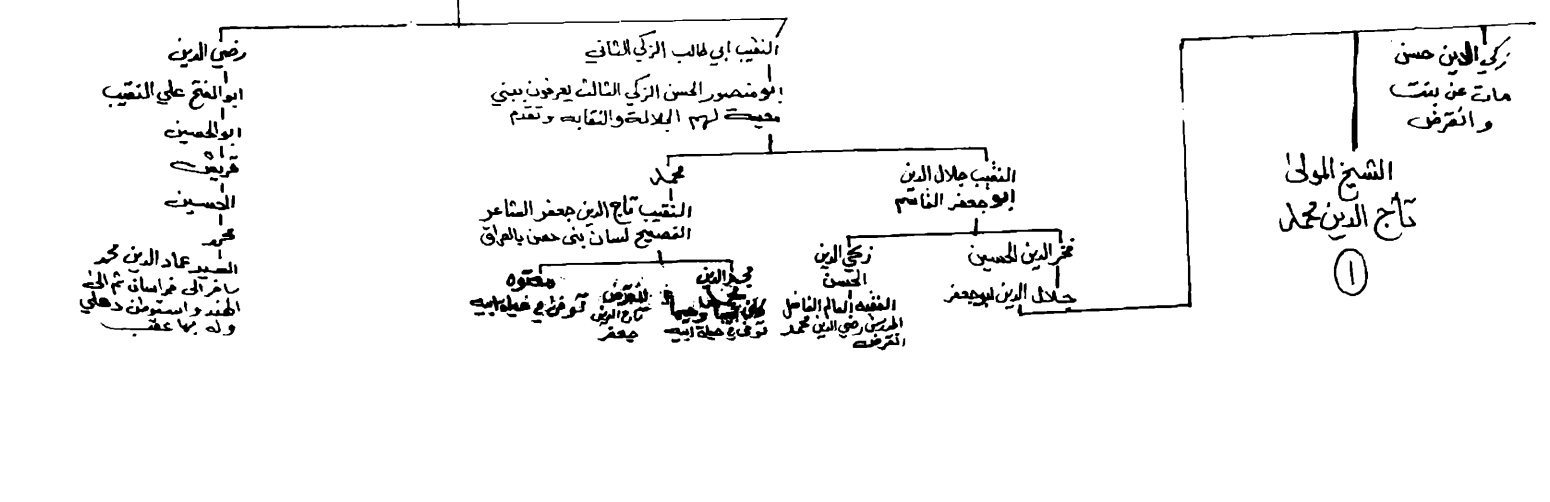 زكي الدين حسن
مات عن بنت
وانقرض
الشيخ المولى
تاج الدين محمد
١
النقيب ابي طالب الزكي الثاني
ابو منصور الحسن الزكي الثالث يعرفون ببني
معية لهم الجلالة والنقابه وتقدم
النقيب جلال الدين
ابو جعفر القاسم
فخر الدين الحسين
جلال الدين ابو جعفر
زكي الدين
الحسن
الفقيه العالم الفاضل
المدرس رضي الدين محمد
انقرض
محمد
النقيب تاج الدين جعفر الشاعر
الفصيح لسان بني حسن بالعراق
مجد الدين
محمد
توفي في حياة ابيه
انقرض
تاج الدين
جعفر
معتوه
توفي في حياة ابيه
رضي الدين
ابو الفتح علي النقيب
ابو الحسين
قريش
الحسين
محمد
السيد عماد الدين محمد
سافر الى خراسان ثم الى
الهند واستوطن دهلي
وله بها عقب